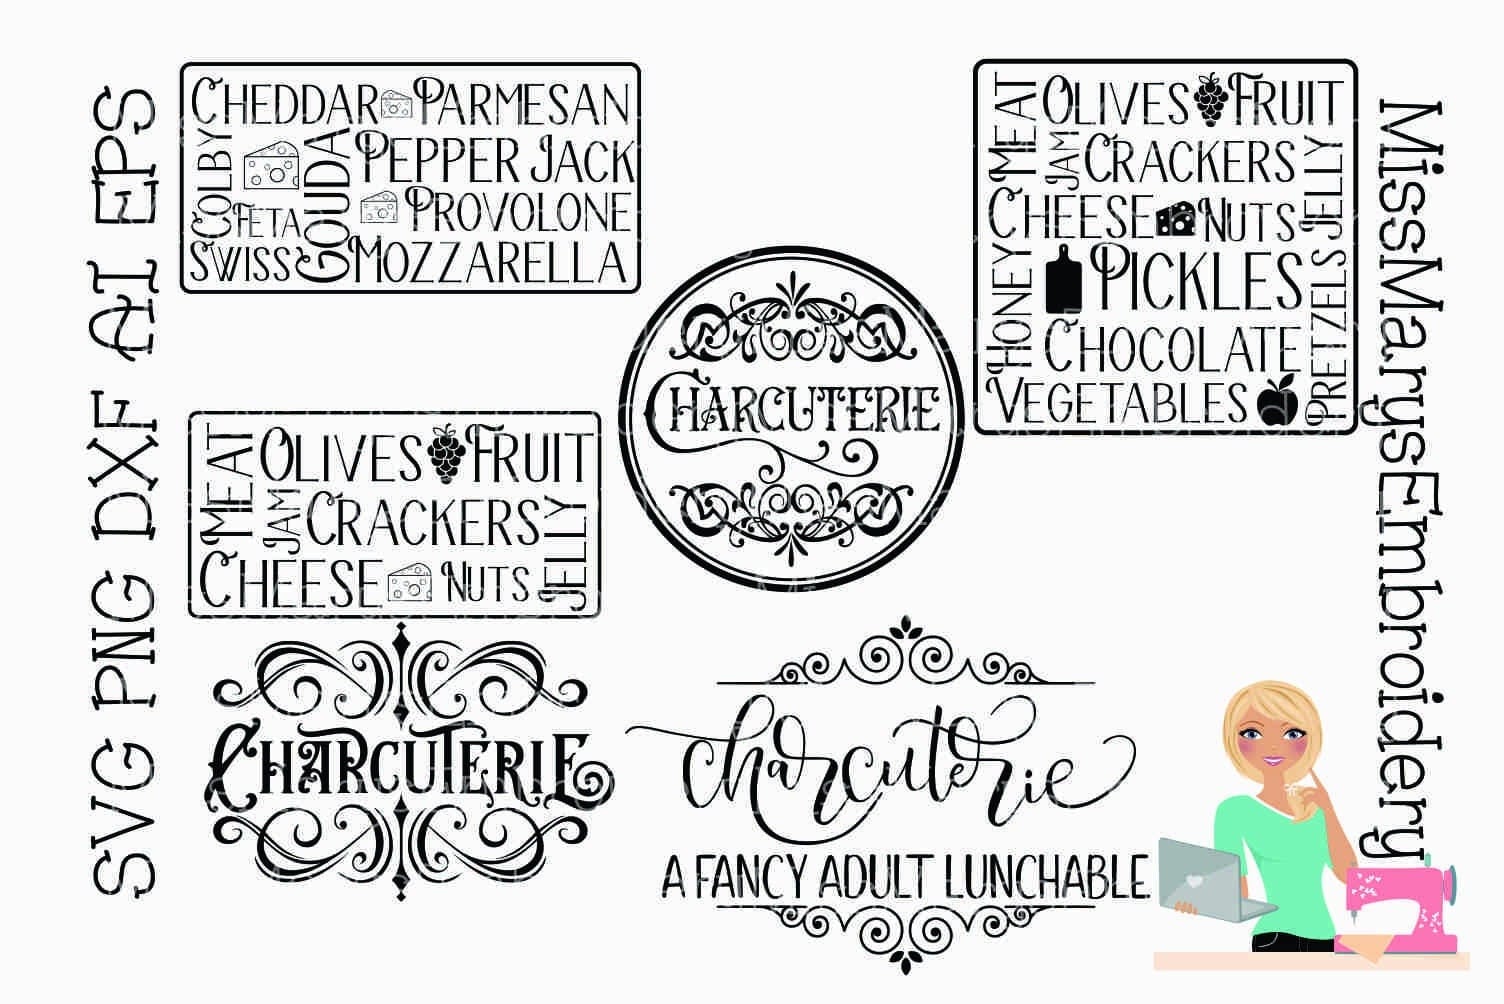 SVG PNG DXF AI EPS
CHEDDAR PARMESAN
COLBY
GOUDA
PEPPER JACK
FETA
PROVOLONE
SWISS
MOZZARELLA
MEAT
OLIVES FRUIT
JAM
CRACKERS
JELLY
CHEESE NUTS
HONEY
PICKLES
PRETZELS
CHOCOLATE
VEGETABLES
CHARCUTERIE
MEAT
OLIVES FRUIT
JAM
CRACKERS
JELLY
CHEESE NUTS
CHARCUTERIE
charcuterie
A FANCY ADULT LUNCHABLE
MissMarysEmbroidery